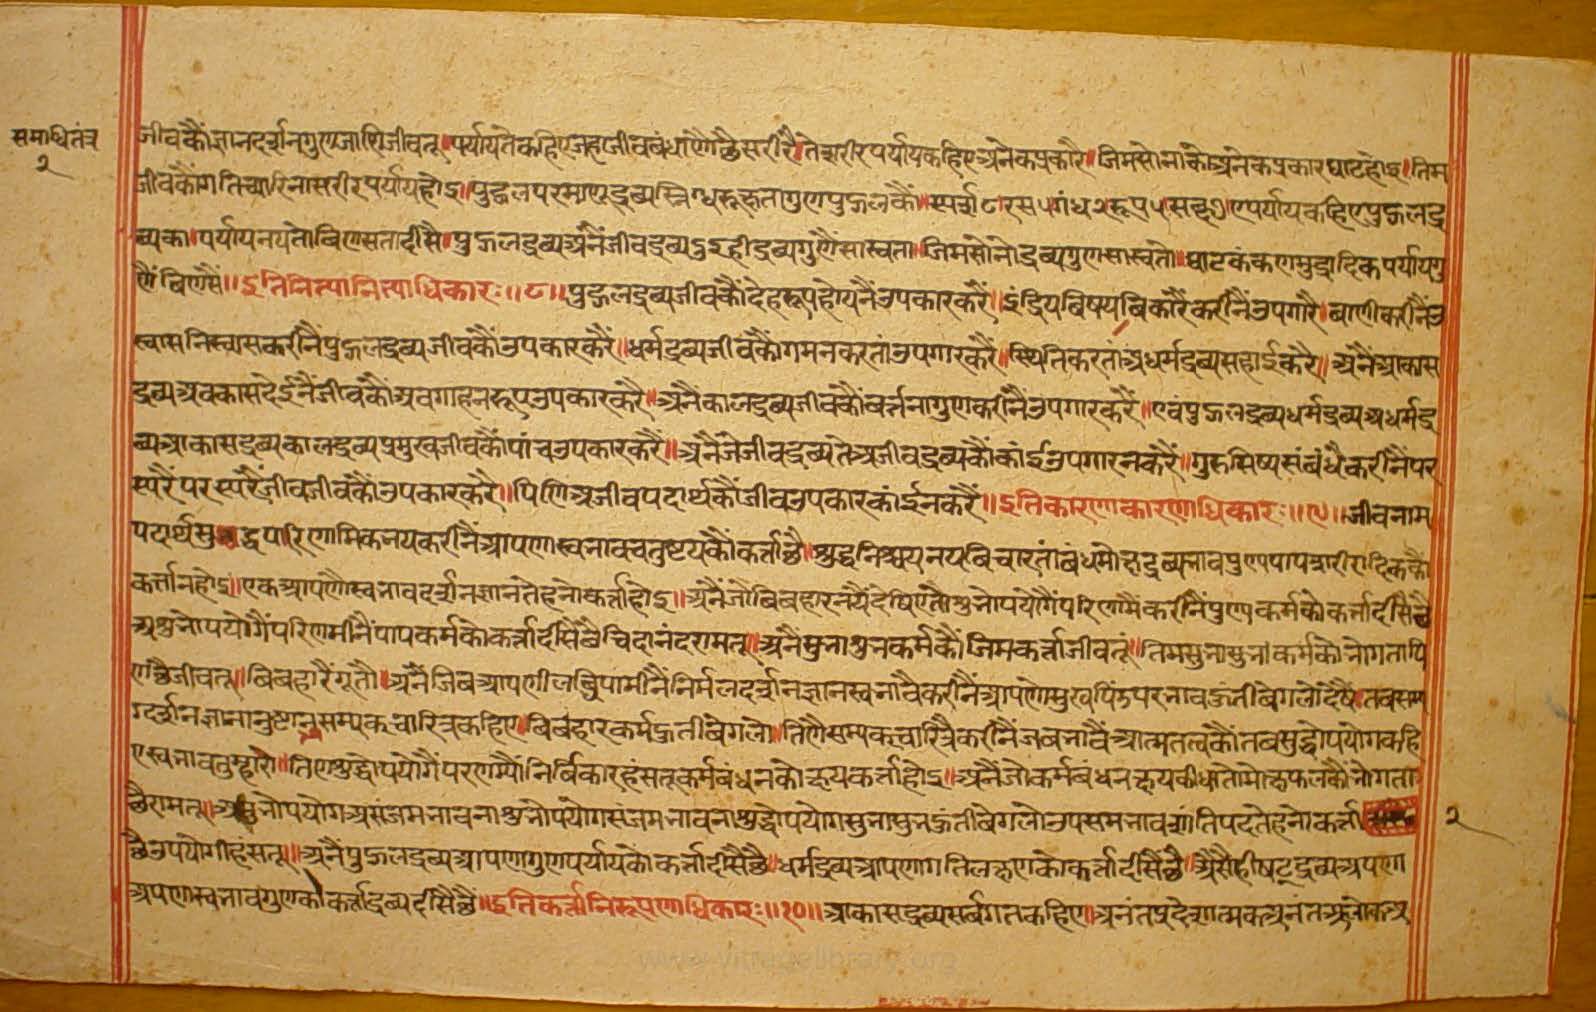 समाधितंत्र
२
जीवकौं ज्ञानदर्शनगुण जाणि जीवतू॥ पर्यायते कहिए जहजीव बंधाणौ छै सरीरै ते शरीरपर्याय कहिए अनेक प्रकारै॥ जिम सोनाको अनेक प्रकार घाट होइ॥ तिम
जीवकौं गति च्यारिना सरीर पर्याय होइ॥ पुद्गल परमाणू द्रव्य स्निग्ध रूक्षता गुण पुद्गलकौं॥ स्पर्श ८ रस ५ गंध २ रूप ५ सब्द ए पर्याय कहिए पुद्गलद्र
व्यका॥ पर्यायनयतो विणसता दीसै॥ पुद्गलद्रव्य अनैं जीवद्रव्य गुणैं सास्वता॥ जिम सोनो द्रव्यगुण सास्वतो॥ घाट कंकण मुद्रादिक पर्यायगु
णैं विणसैं॥ इति नित्यानित्याधिकारः॥८॥ पुद्गलद्रव्य जीवकौं देहरूप होयनैं उपकार करैं॥ इंद्रिय विषय बिकारैं करीनैं उपगारै॥ वाणी करीनैं उ
स्वास निस्वास करीनैं पुद्गलद्रव्य जीवकौं उपकार करैं॥ धर्मद्रव्य जीवकौं गमन करतां उपगार करैं॥ स्थिति करतां अधर्मद्रव्य सहाई करै॥ अनैं आकास
द्रव्य अवकास देईनैं जीवकौं अवगाहनरूप उपकार करै॥ अनैं कालद्रव्य जीवकौं वर्तनागुण करीनैं उपगार करैं॥ एवं पुद्गलद्रव्य धर्मद्रव्य अधर्मद्र
व्य आकासद्रव्य कालद्रव्य प्रमुख जीवकौं पांच उपकार करैं॥ अनैं जे जीवद्रव्य ते अजीवद्रव्यकौं कांई उपगार न करैं॥ गुरु सिष्य संबंधै करीनैं पर
स्परैं परस्परैं जीव जीवकौं उपकार करै॥ पिणि अजीव पदार्थकौं जीव उपकार कांई न करैं॥ इति कारणाकारणाधिकारः॥९॥ जीवनाम
पदार्थ सुद्ध पारिणामिकनय करीनैं आपणा स्वभाव चतुष्टयकौ कर्ता छै॥ शुद्ध निश्चयनय बिचारतां बंध मोक्ष द्रव्यभाव पुण्य पाप शरीरादिककौ
कर्त्ता न होइ॥ एक आपणौ स्वभाव दर्शन ज्ञान तेहनो कर्त्ता होइ॥ अनैं जो बिवहारनयैं देषिए तौ शुभोपयोगैं परिणामैं करीनैं पुण्यकर्मको कर्त्ता दीसै छै
अशुभोपयोगैं परिणमीनैं पापकर्मको कर्त्ता दीसै छै चिदानंदरामतू॥ अनैं सुभाशुभकर्मकौ जिम कर्त्ता जीवतूं॥ तिम सुभासुभ कर्मको भोगता पि
ण छै जीवतू॥ बिवहारैं गूतौ॥ अनैं जिव आपणी लब्धि पामीनैं निर्मल दर्शन ज्ञान स्वभावै करीनैं आपणो सुखपिंड परभावऊंती वेगलो देषै तव सम्य
ग्दर्शन ज्ञानानुष्टान सम्यक् चारित्र कहिए॥ बिवहारकर्मऊंती वेगलो॥ तिणै सम्यक् चारित्रै करीनैं जब भावैं आत्मतत्वकौं तब सुद्धोपयोग कहि
ए स्वभाव तुम्हारो॥ तिण शुद्धोपयोगैं परणम्यौ निर्विकार हंसतू कर्मबंधनको क्षयकर्त्ता होइ॥ अनैं जो कर्मबंधन क्षय कीधा तो मोक्षफलकौ भोगता
छै रामतू॥ अशुभोपयोग असंजम भावना शुभोपयोग संजमभावना शुद्धोपयोग सुभासुभऊंती वेगलो उपसमभाव शांतिपद तेहनो कर्त्ता
२
छै उपयोगी हंसतू॥ अनैं पुद्गलद्रव्य आपणा गुणपर्यायको कर्त्ता दीसै छै॥ धर्मद्रव्य आपणा गतिलक्षणको कर्त्ता दीसै छै॥ अैसैही षट्द्रव्य अपणा
अपणा स्वभावगुणको कर्त्ता द्रव्य दीसै छैं॥ इति कर्त्तानिरूपणाधिकारः॥१०॥ आकासद्रव्य सर्वगत कहिए॥ अनंतप्रदेशात्मक अनंत अलोक अ
www.vitragelibrary.org